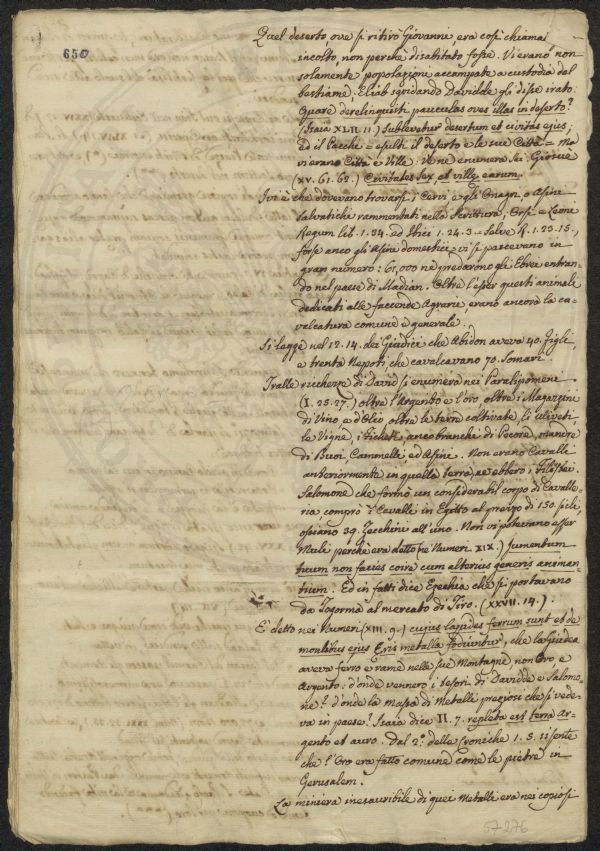 650
Quel deserto, ove si ritirò Giovanni era così chiama
incolto, non perchè disabitato fosse. Vi erano non
solamente popolazione accampate a custodia dal
bestiame; Eliab sgridando Davidde gli disse irato
Quare dereliquisti pauculas oves illas in deserto?
(Isaia XLII. 11.) Sublevetur desertum et civitas ejus;
ed il Pacchi = esulti il deserto e le sue Città = Ma
vi erano Città e Ville. Ve ne enumera Sei Giosuè
(XV. 61. 62.) Civitates Sex, et ville earum.
Ivi è che dovevano trovarsi i Cervi e gli Onagri o Asini
Salvatichi rammentati nella Scrittura; Orsi e Leoni
Regum Lib. 1. 24. ed Ibici 1. 24. 3 = Selve R. 1. 23. 15,
forse anco gli Asini domestici vi si pascevano in
gran numero: 61,000 ne predarono gli Ebrei entran
do nel paese di Madian. Oltre l'esser questi animali
dedicati alle faccende Agrarie, erano ancora la ca-
valcatura comune e generale.
Si legge nel 12. 14. dei Giudici che Abidon aveva 40. figli
e trenta Nepoti, che cavalcavano 70. Somari.
Tralle ricchezze di David si enumera nei Paralipomeni
(I. 25. 27.) oltre l'Argento e l'oro oltre i Magazzini
di Vino, e d'Olio, oltre le terre coltivate, gli uliveti,
le Vigne, i ficheti, anco branchi di Pecore, mandre
di Buoi, Cammelli, ed Asini. Non erano Cavalli
anteriormente in quella terra, ne ebbero i Filistei.
Salomone che formò un considerabil corpo di Cavalle-
ria comprò i Cavalli in Egitto al prezzo di 150. sicli,
ossiano 39. Zecchini all'uno. Non vi potevano esser
Muli perchè era detto (nei Numeri XIX.) Jumentum
tuum non facies coire cum alterius generis animan-
tium. Ed in fatti dice Ezechia che si portavano
da Togorma al mercato di Tiro. (XXVII. 14.).
E' detto nei Numeri (XIII. 9.) cujus lapides ferrum sunt et de
montibus ejus Eris metalla fodiuntur, che la Giudea
aveva ferro e rame nelle sue Montagne non Oro, e
Argento: d'onde vennero i tesori di Davidde e Salomo-
ne? d'onde la massa di Metalli preziosi che si vede-
va in paese? Isaia dice II. 7. repleta est terra Ar-
gento et auro. Dal 2.° delle Croniche 1. 5. si sente
che l'Oro era fatto comune come le pietre in
Gerusalem.
La miniera inesauribile di quei Metalli era nei copiosi
57276